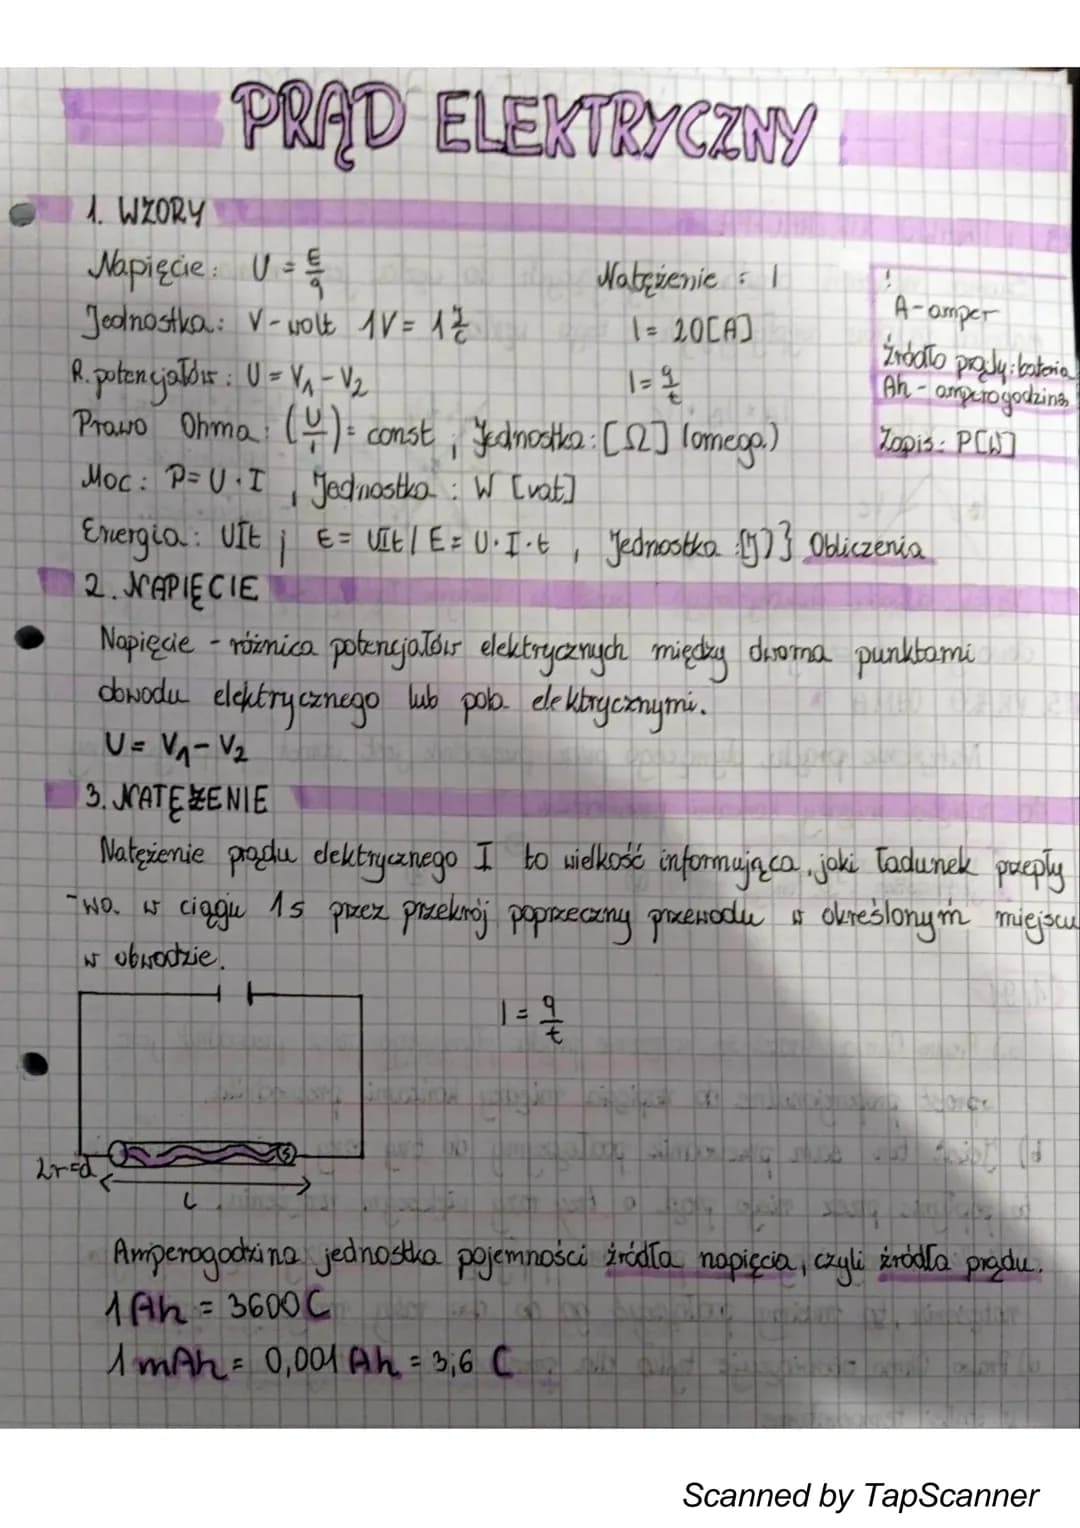 PRĄD ELEKTRYCZNY
1. WZORY
Napięcie: U = E/q
Natężenie: I
Jednostka: V - wolt 1V = 1 J/C
I = 20[A]
R. potencjałów: U = V₁ - V₂
I = q/t
Prawo Ohma: (U/I) = const, Jednostka: [Ω] (omega)
Moc: P = U · I, Jednostka: W [vat]
Energia: UIt; E = UIt / E = U·I·t, Jednostka: [J] } Obliczenia
!
A - amper
Źródło prądy: bateria
Ah - amperogodzina
Zapis: P[W]
2. NAPIĘCIE
Napięcie - różnica potencjałów elektrycznych między dwoma punktami
obwodu elektrycznego lub pola elektrycznymi.
U = V₁ - V₂
3. NATĘŻENIE
Natężenie prądu elektrycznego I to wielkość informująca, jaki ładunek przepły
-wa w ciągu 1s przez przekrój poprzeczny przewodu w określonym miejscu
w obwodzie.
I = q/t
2r=d
S
L
Amperogodzina jednostka pojemności źródła napięcia, czyli źródła prądu.
1 Ah = 3600 C
1 mAh = 0,001 Ah = 3,6 C
Scanned by TapScanner